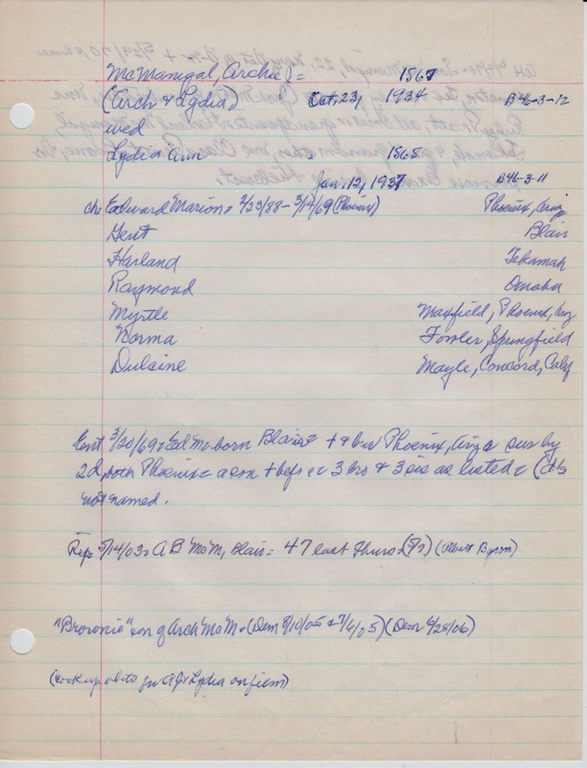 McManigal, Archie J = 1867
(Arch & Lydia) Oct. 23, 1934 B46-3-12
wed
Lydia Ann 1865
Jan. 12, 1937 B46-3-11
ch Edward Marion = 2/23/88 - 3/14/69 (Phoenix) Phoenix, Ariz
Gent Blair
Harland Tekamah
Raymond Omaha
Myrtle Maxfield, Phoenix, Ariz
Norma Fowler, Springfield
Dulaine Mayle, Concord, Calif
Ent 3/20/69 = Ed Mc born Blair = Phoenix, Ariz sur by
2 d, both Phoenix = a son + 3 bro & 3 sis as listed = (d's
not named.
Rep 5/14/03 = A B McM, Blair = 47 last Thurs = (5/7) (Albert Byron)
"Brownie" son of Arch McM = (Dem 8/10/05 & 7/6/05) (Dem 6/28/06)
(Look up obits for AJ & Lydia on film)